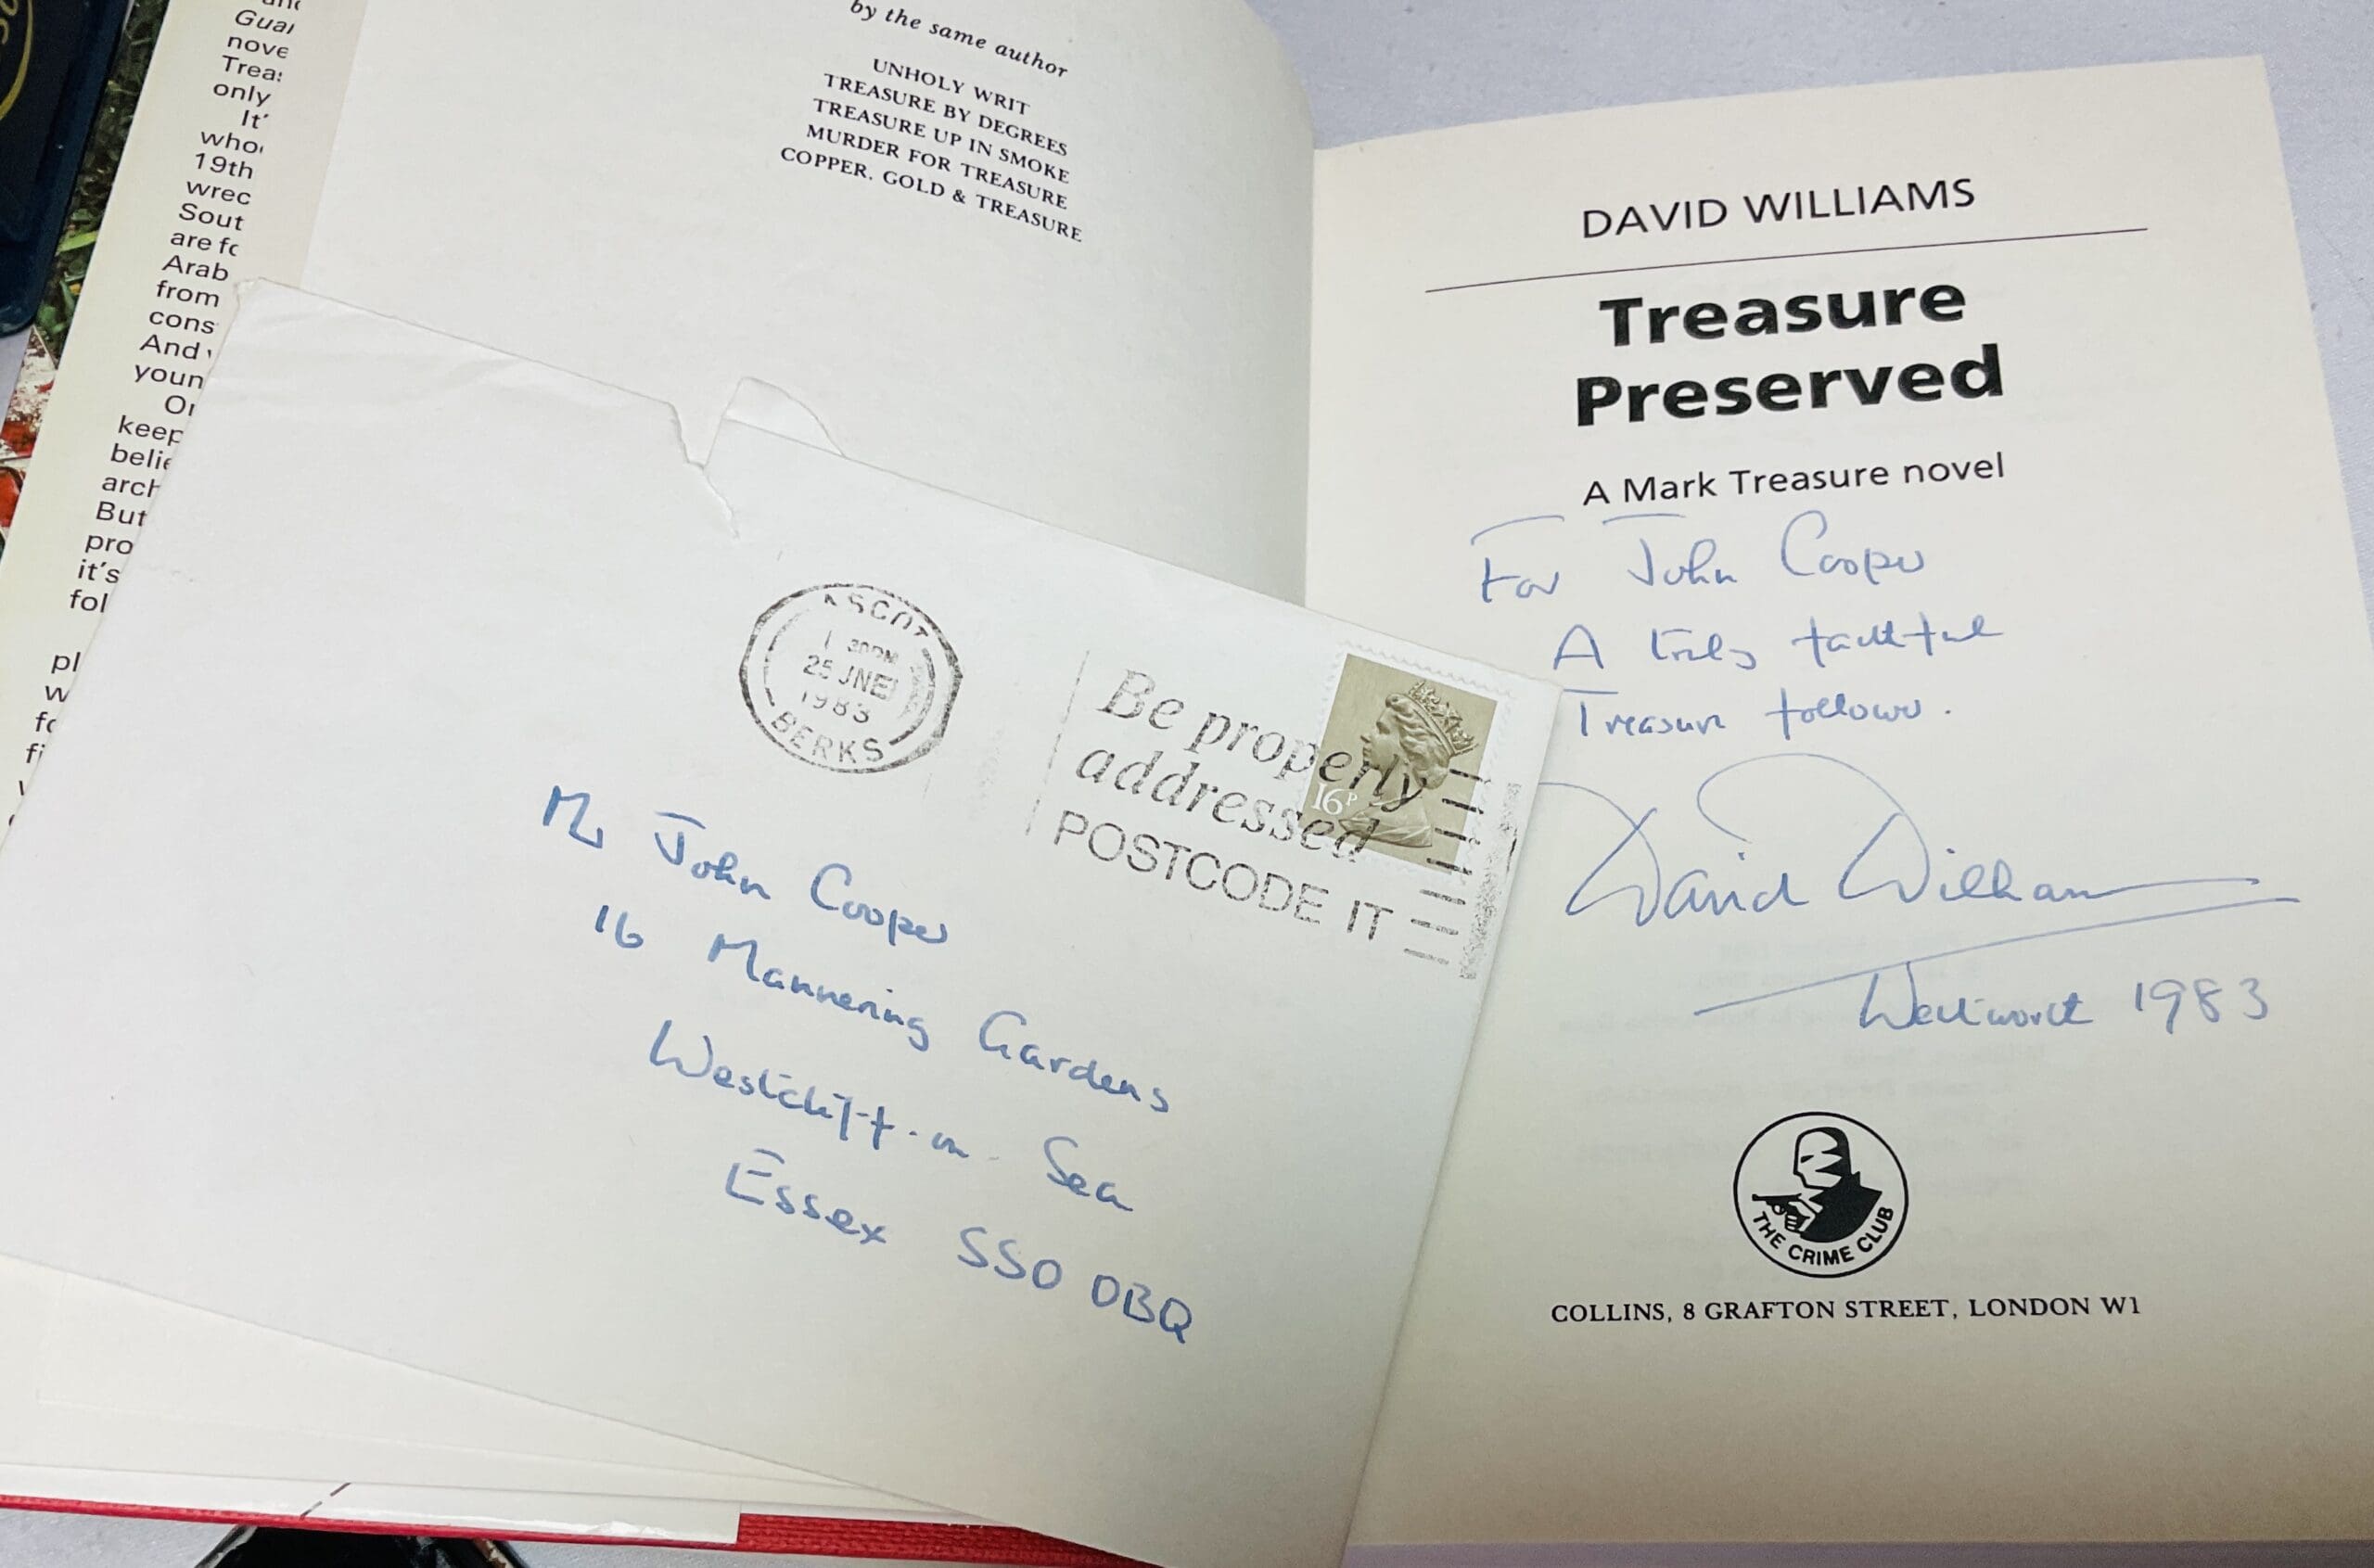 and
Guar
nove
Treas
only
It'
who
19th
wrec
Sout
are fo
Arab
from
cons
And
youn
Or
keep
belie
arch
But
pro
it's
fol
pl
w
fo
fi
by the same author
UNHOLY WRIT
TREASURE BY DEGREES
TREASURE UP IN SMOKE
MURDER FOR TREASURE
COPPER, GOLD & TREASURE
ASCOT
25 JNE
1983
BERKS
Be properly
addressed
POSTCODE IT
16P
Mr John Cooper
16 Mannering Gardens
Westcliff-on-Sea
Essex SS0 0BQ
DAVID WILLIAMS
Treasure
Preserved
A Mark Treasure novel
For John Cooper
A truly faithful
Treasure follower.
David Williams
Wentworth 1983
THE CRIME CLUB
COLLINS, 8 GRAFTON STREET, LONDON W1